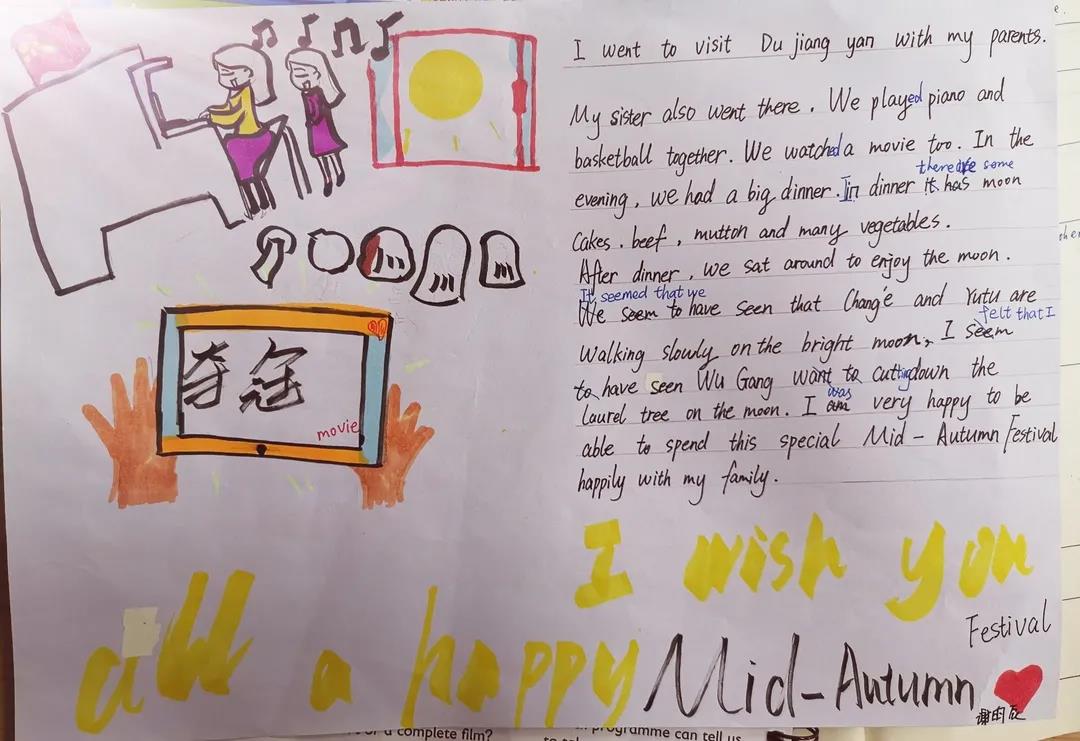 I went to visit Du jiang yan with my parents.
My sister also went there. We played piano and
basketball together. We watched a movie too. In the
there are some
evening, we had a big dinner. In dinner it has moon
Cakes. beef, mutton and many vegetables.
After dinner, we sat around to enjoy the moon.
It seemed that we
We seem to have seen that Chang'e and Yutu are
felt that I
Walking slowly on the bright moon, I seem
to have seen Wu Gang want to cutting down the
was
laurel tree on the moon. I am very happy to be
able to spend this special Mid-Autumn Festival
happily with my family.
夺冠
movie
I wish you
all a happy Mid-Autumn
Festival
a complete film?
programme can tell us